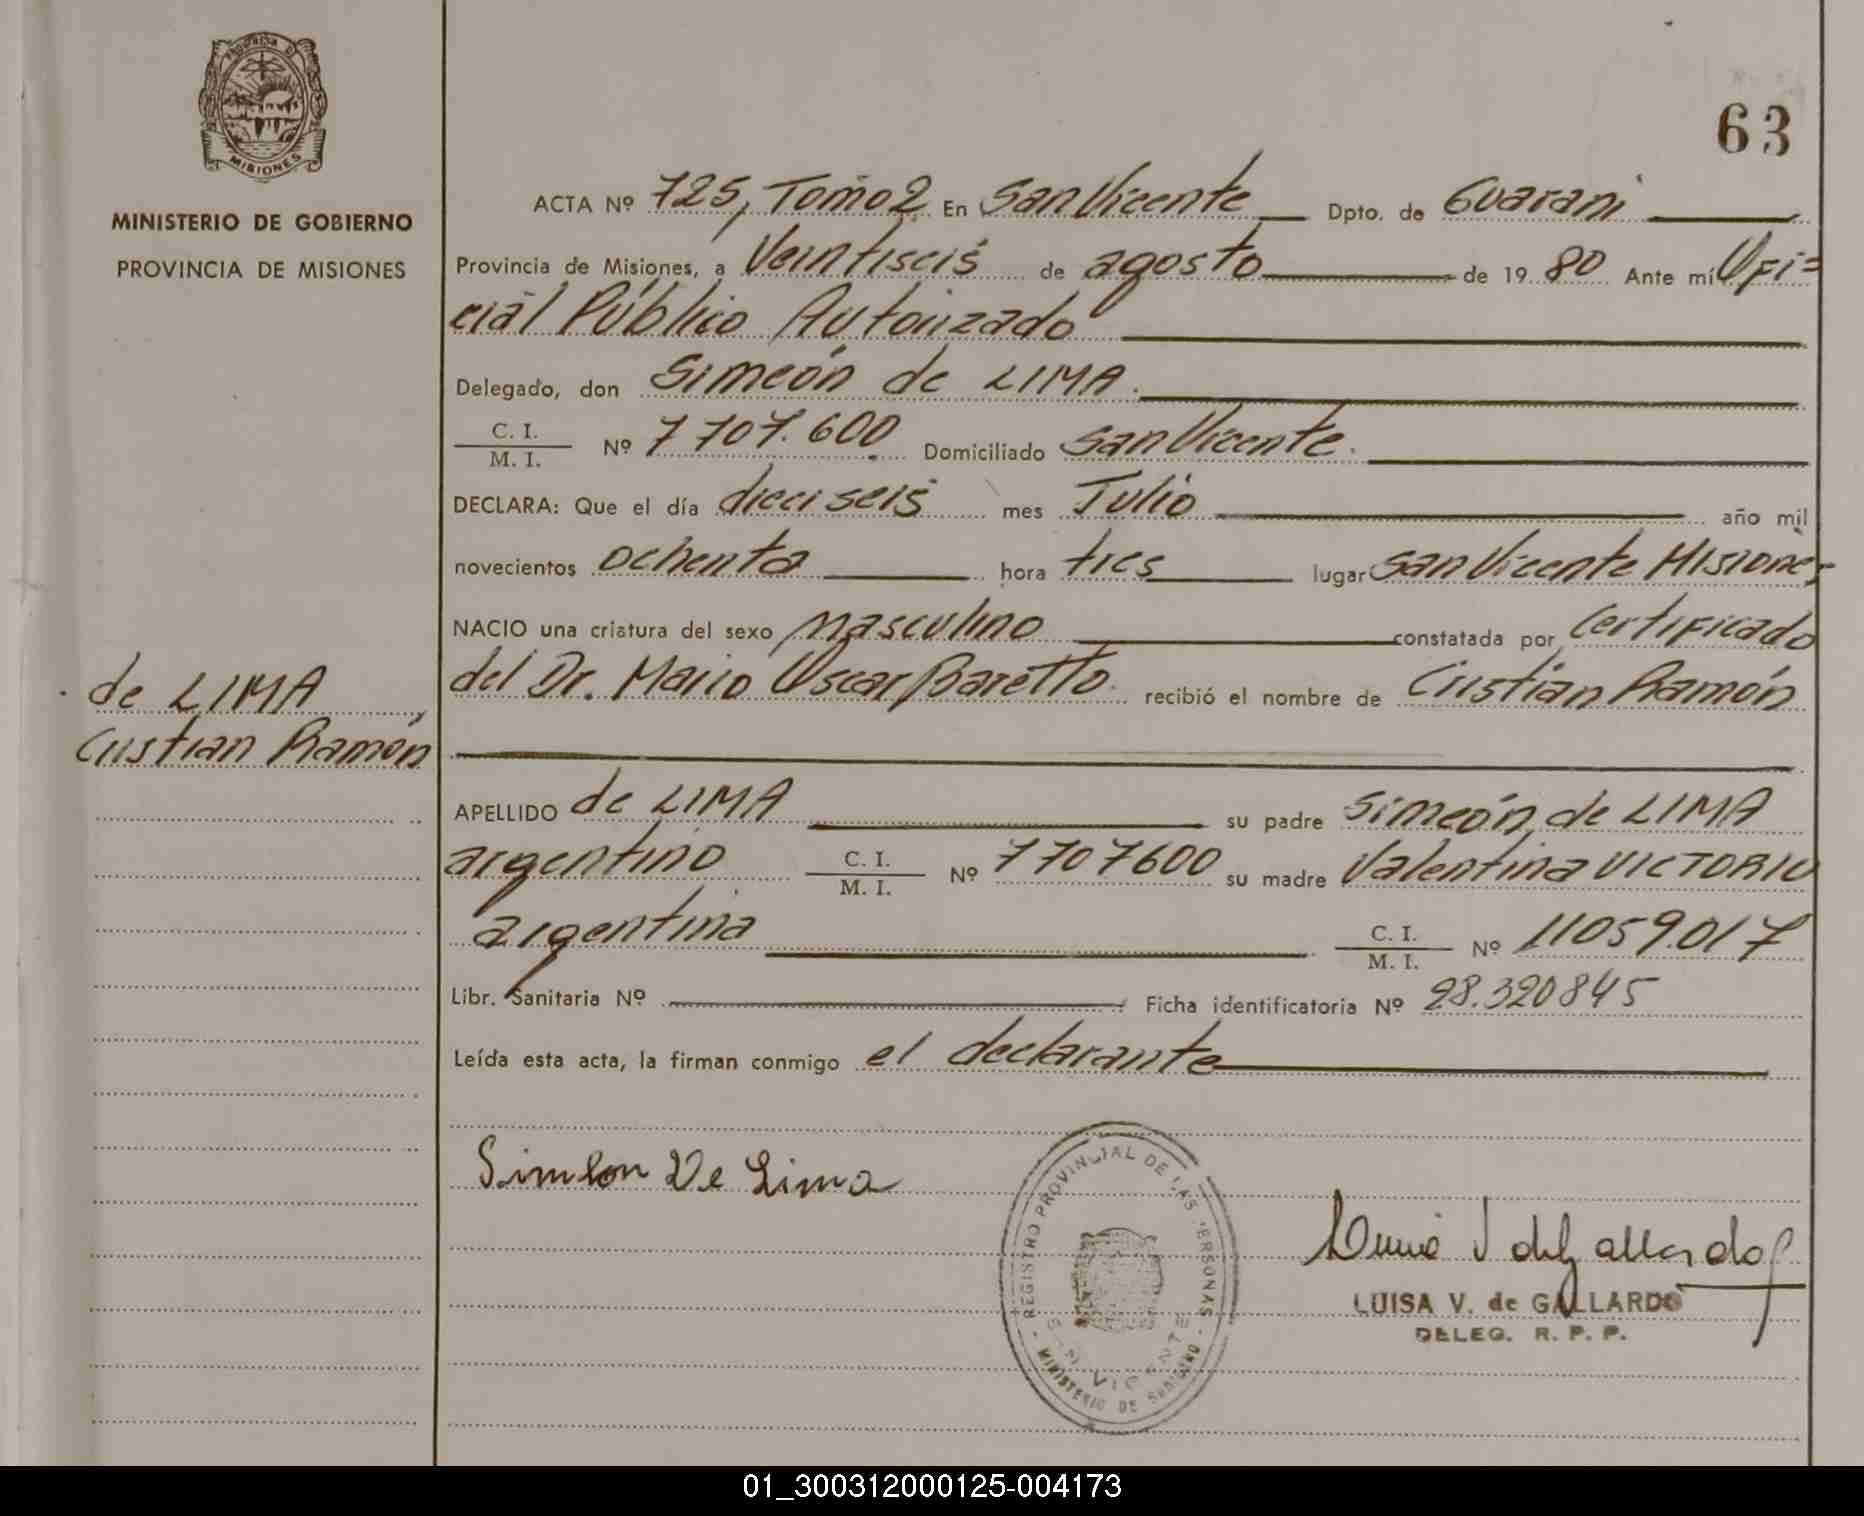 PROVINCIA DE
MISIONES
MINISTERIO DE GOBIERNO
PROVINCIA DE MISIONES
63
ACTA Nº 725, Tomo 2 En San Vicente Dpto. de Guarani
Provincia de Misiones, a Veintiseis de agosto de 19 80 Ante mí Ofi=
cial Público Autorizado
Delegado, don Simeón de LIMA.
C. I.
M. I. Nº 7707.600 Domiciliado San Vicente.
DECLARA: Que el día dieciseis mes Julio año mil
novecientos ochenta hora tres lugar San Vicente Misiones
NACIO una criatura del sexo masculino constatada por Certificado
del Dr. Mario Oscar Baretto. recibió el nombre de Cristian Ramón
de LIMA
Cristian Ramón
APELLIDO de LIMA su padre Simeón de LIMA
argentino C. I.
M. I. Nº 7707600 su madre Valentina VICTORIO
argentina C. I.
M. I. Nº 11059.017
Libr. Sanitaria Nº Ficha identificatoria Nº 28.320845
Leída esta acta, la firman conmigo el declarante
Simeon De Lima
REGISTRO PROVINCIAL DE LAS PERSONAS
SAN VICENTE
MINISTERIO DE GOBIERNO
Luisa V de Gallardo
LUISA V. de GALLARDO
DELEG. R. P. P.
01_300312000125-004173